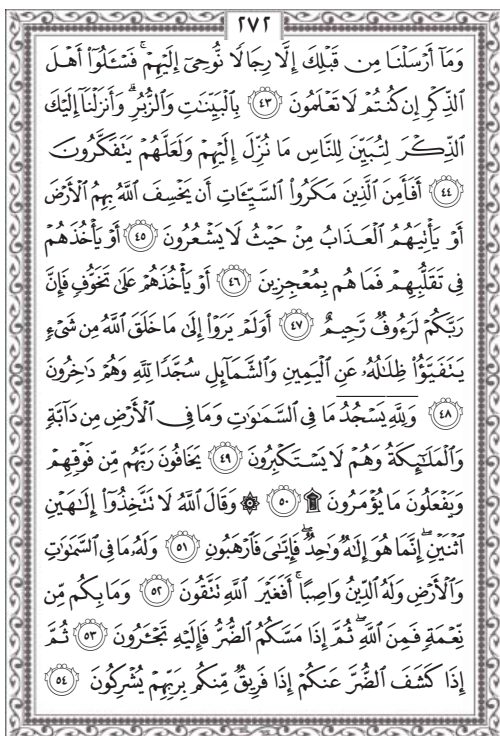 ٢٧٢
وَمَآ أَرْسَلْنَا مِن قَبْلِكَ إِلَّا رِجَالًا نُّوحِىٓ إِلَيْهِمْ ۚ فَسْـَٔلُوٓا۟ أَهْلَ
ٱلذِّكْرِ إِن كُنتُمْ لَا تَعْلَمُونَ ٤٣ بِٱلْبَيِّنَـٰتِ وَٱلزُّبُرِ ۗ وَأَنزَلْنَآ إِلَيْكَ
ٱلذِّكْرَ لِتُبَيِّنَ لِلنَّاسِ مَا نُزِّلَ إِلَيْهِمْ وَلَعَلَّهُمْ يَتَفَكَّرُونَ
٤٤ أَفَأَمِنَ ٱلَّذِينَ مَكَرُوا۟ ٱلسَّيِّـَٔاتِ أَن يَخْسِفَ ٱللَّهُ بِهِمُ ٱلْأَرْضَ
أَوْ يَأْتِيَهُمُ ٱلْعَذَابُ مِنْ حَيْثُ لَا يَشْعُرُونَ ٤٥ أَوْ يَأْخُذَهُمْ
فِى تَقَلُّبِهِمْ فَمَا هُم بِمُعْجِزِينَ ٤٦ أَوْ يَأْخُذَهُمْ عَلَىٰ تَخَوُّفٍ فَإِنَّ
رَبَّكُمْ لَرَءُوفٌ رَّحِيمٌ ٤٧ أَوَلَمْ يَرَوْا۟ إِلَىٰ مَا خَلَقَ ٱللَّهُ مِن شَىْءٍ
يَتَفَيَّؤُا۟ ظِلَـٰلُهُۥ عَنِ ٱلْيَمِينِ وَٱلشَّمَآئِلِ سُجَّدًا لِّلَّهِ وَهُمْ دَٰخِرُونَ
٤٨ وَلِلَّهِ يَسْجُدُ مَا فِى ٱلسَّمَـٰوَٰتِ وَمَا فِى ٱلْأَرْضِ مِن دَآبَّةٍ
وَٱلْمَلَـٰٓئِكَةُ وَهُمْ لَا يَسْتَكْبِرُونَ ٤٩ يَخَافُونَ رَبَّهُم مِّن فَوْقِهِمْ
وَيَفْعَلُونَ مَا يُؤْمَرُونَ ۩ ٥٠ ۞ وَقَالَ ٱللَّهُ لَا تَتَّخِذُوٓا۟ إِلَـٰهَيْنِ
ٱثْنَيْنِ ۖ إِنَّمَا هُوَ إِلَـٰهٌ وَٰحِدٌ ۖ فَإِيَّـٰىَ فَٱرْهَبُونِ ٥١ وَلَهُۥ مَا فِى ٱلسَّمَـٰوَٰتِ
وَٱلْأَرْضِ وَلَهُ ٱلدِّينُ وَاصِبًا ۚ أَفَغَيْرَ ٱللَّهِ تَتَّقُونَ ٥٢ وَمَا بِكُم مِّن
نِّعْمَةٍ فَمِنَ ٱللَّهِ ۖ ثُمَّ إِذَا مَسَّكُمُ ٱلضُّرُّ فَإِلَيْهِ تَجْـَٔرُونَ ٥٣ ثُمَّ
إِذَا كَشَفَ ٱلضُّرَّ عَنكُمْ إِذَا فَرِيقٌ مِّنكُم بِرَبِّهِمْ يُشْرِكُونَ ٥٤